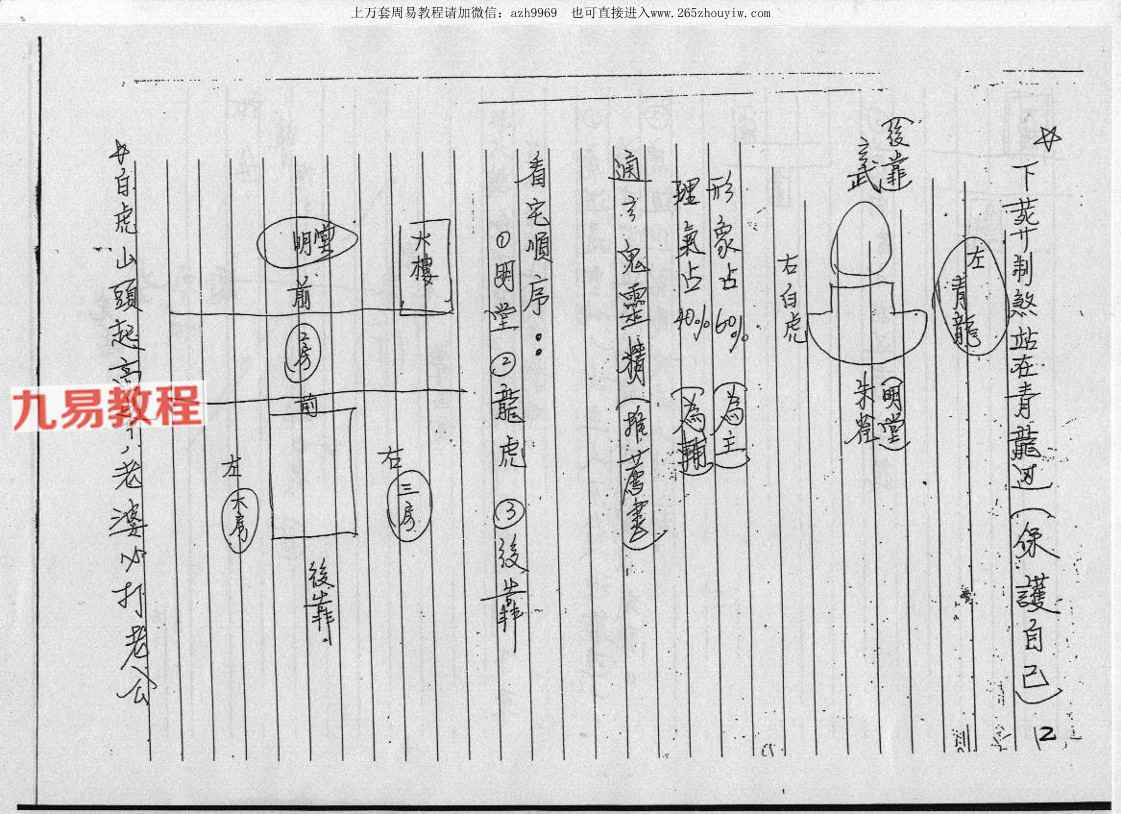 上万套周易教程请加微信：azh9969　也可直接进入www.265zhouyiw.com
☆下葬制煞站在青龍边(保護自己)
12
左青龍
(後靠)
玄武
(明堂)
朱雀
右白虎
形象占60% (為主)
理氣占40% (為輔)
通玄鬼靈精(推薦書)
看宅順序：
①明堂②龍虎③後靠
大樓
右
三房
明堂
前
二房
前
後靠
左
大房
☆白虎山頭起高
，老婆必打老公
九易教程